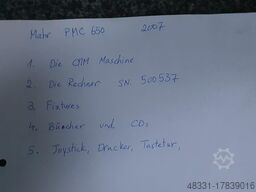 Mahr PMC 650 2007
1. Die CMM Maschine
2. Die Rechner SN. 500537
3 Fixtures
4. Bücher und CDs
5. Joystick, Drucker, Tastetur,
48331-17839016